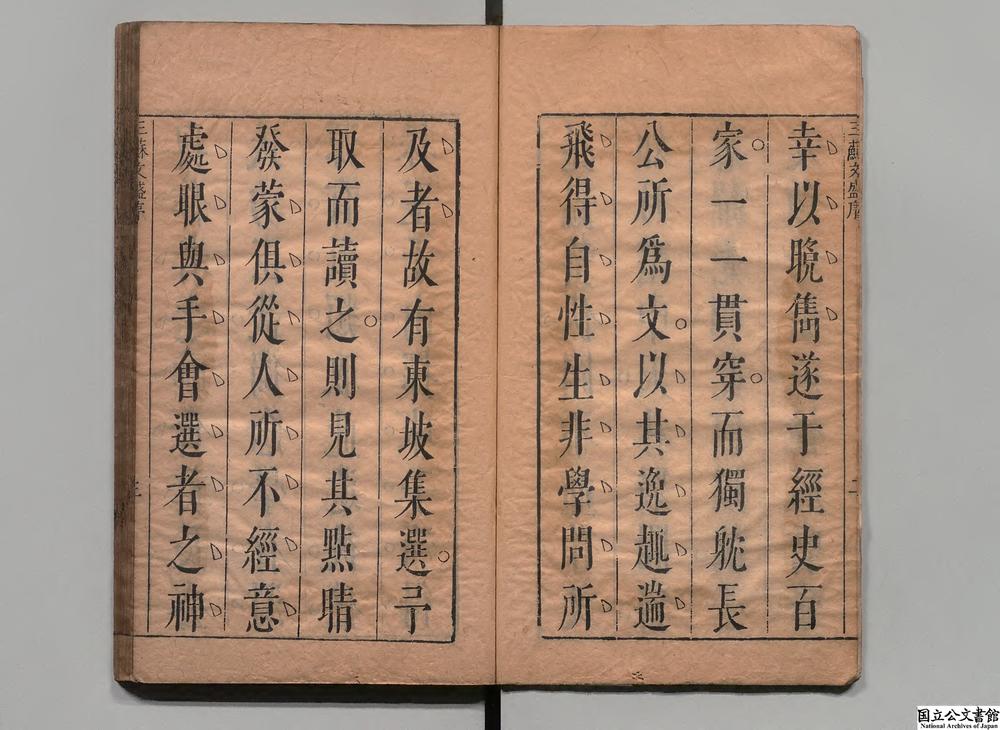 幸以晩雋遂于經史百
家一一貫穿而獨躭長
公所爲文以其逸趣遄
飛得自性生非學問所
及者故有東坡集選予
取而讀之則見其點睛
發蒙俱從人所不經意
處眼與手會選者之神
三蘇文盛序
二
三蘇文盛序
三
国立公文書館
National Archives of Japan